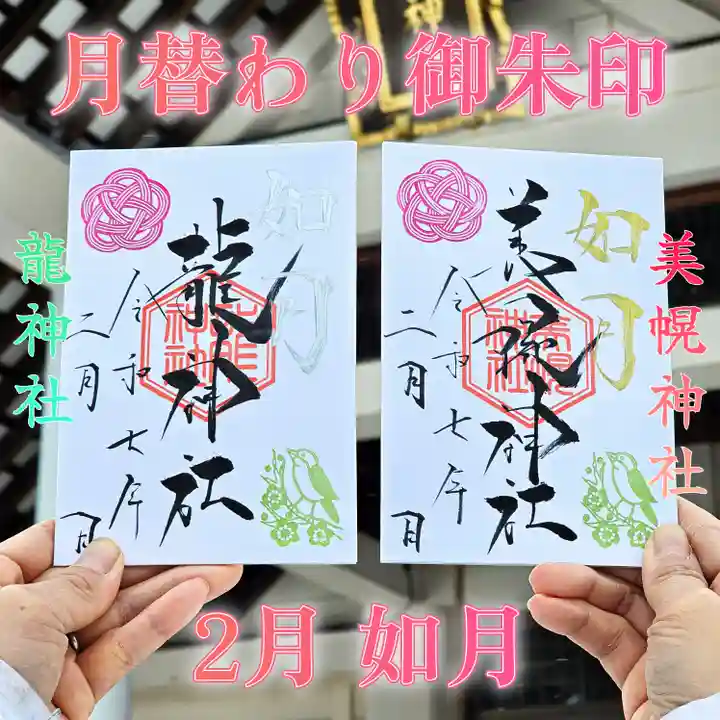 月替わり御朱印
神
如月
龍神社
令和七年
二月
日
龍神社
如月
美幌神社
令和七年
二月
日
美幌神社
美幌神社
龍神社
2月 如月